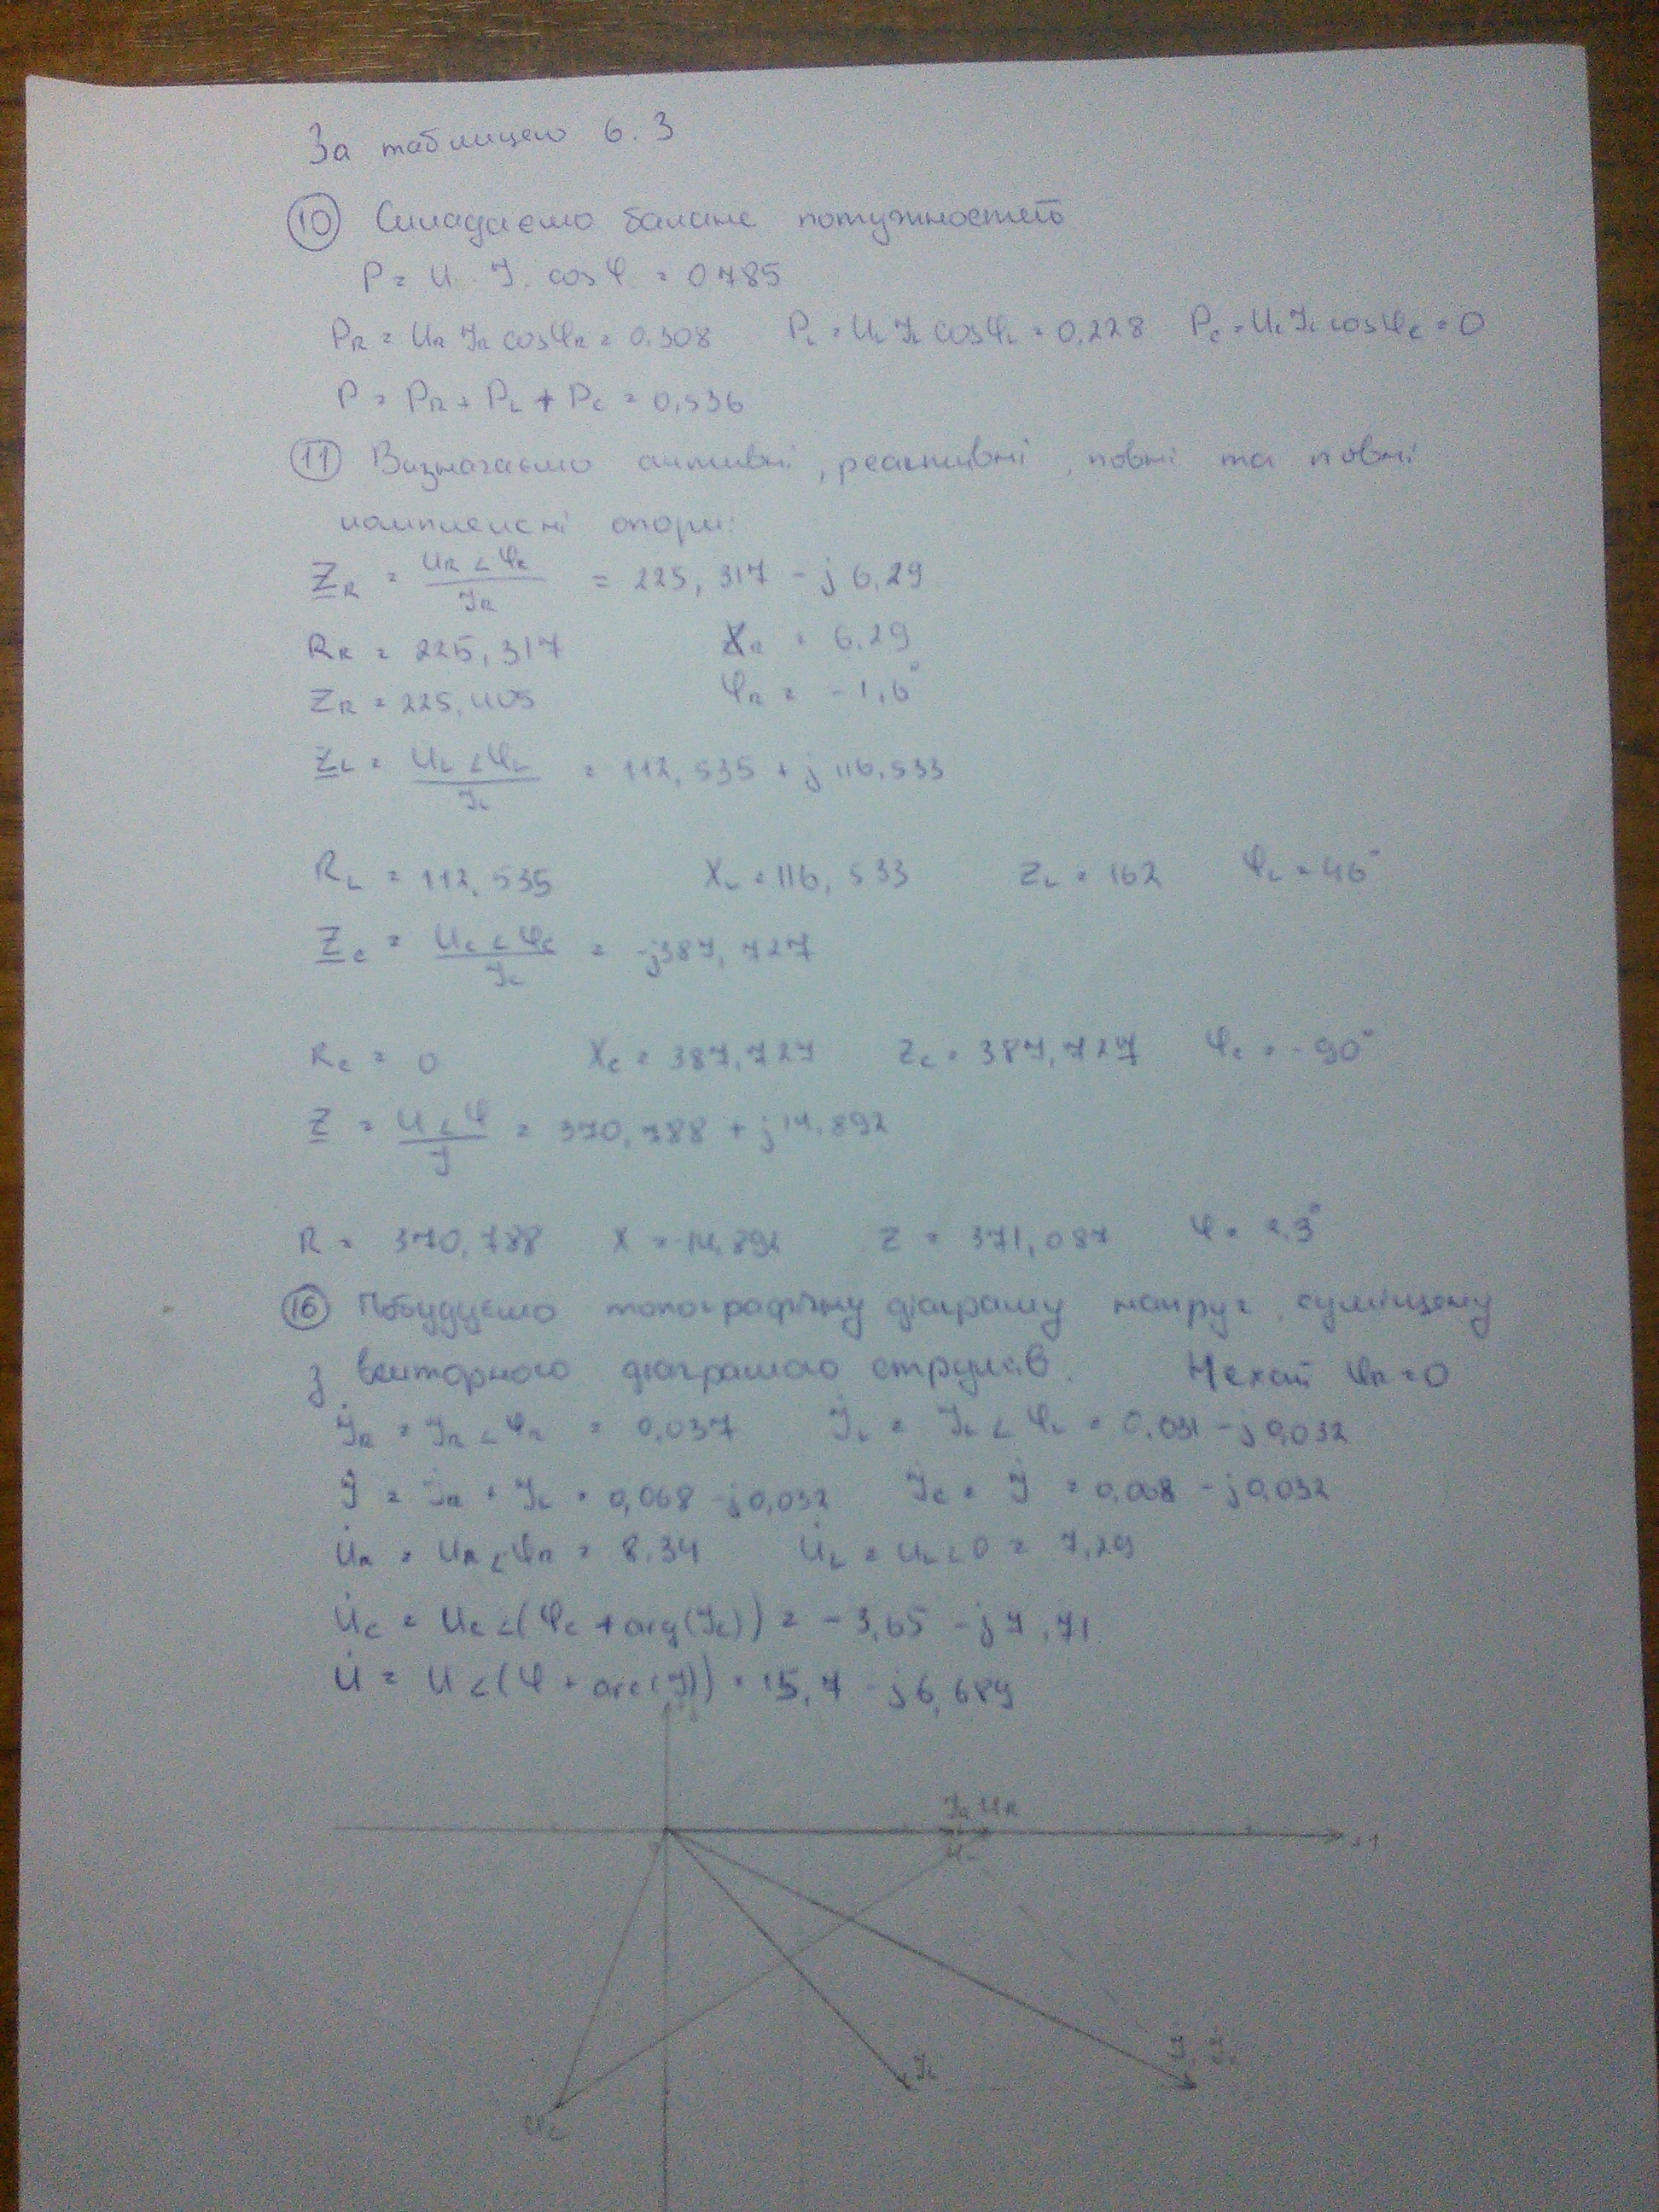 За таблицею 6.3
⑩ Складаємо баланс потужностей
P = U · I · cosφ = 0.785
P_R = U_R I_R cosφ_R = 0.308 P_L = U_L I_L cosφ_L = 0,228 P_C = U_C I_C cosφ_C = 0
P = P_R + P_L + P_C = 0,536
⑪ Визначаємо активні, реактивні, повні та повні
комплексні опори:
Z_R = U_R∠φ_R / I_R = 225,317 - j 6.29
R_R = 225,317 X_R = 6.29
Z_R = 225,405 φ_R = -1,6°
Z_L = U_L∠φ_L / I_L = 112,535 + j 116,533
R_L = 112,535 X_L = 116,533 Z_L = 162 φ_L = 46°
Z_C = U_C∠φ_C / I_C = -j387,727
R_C = 0 X_C = 387,727 Z_C = 387,727 φ_C = -90°
Z = U∠φ / I = 370,788 + j14,892
R = 370,788 X = 14,892 Z = 371,087 φ = 2,3°
⑯ Побудуємо топографічну діаграму напруг, суміщену
з векторною діаграмою струмів. Нехай φ_R = 0
İ_R = I_R∠φ_R = 0,037 İ_L = I_L∠φ_L = 0,031 - j0,032
İ = İ_R + İ_L = 0,068 - j0,032 İ_C = İ = 0,068 - j0,032
U̇_R = U_R∠φ_R = 8.34 U̇_L = U_L∠0 = 7,29
U̇_C = U_C∠(φ_C + arg(I_C)) = -3,65 - j7,71
U̇ = U∠(φ + arc(I)) = 15,7 - j6,689
I_R U_R
+1
I_L
U_C